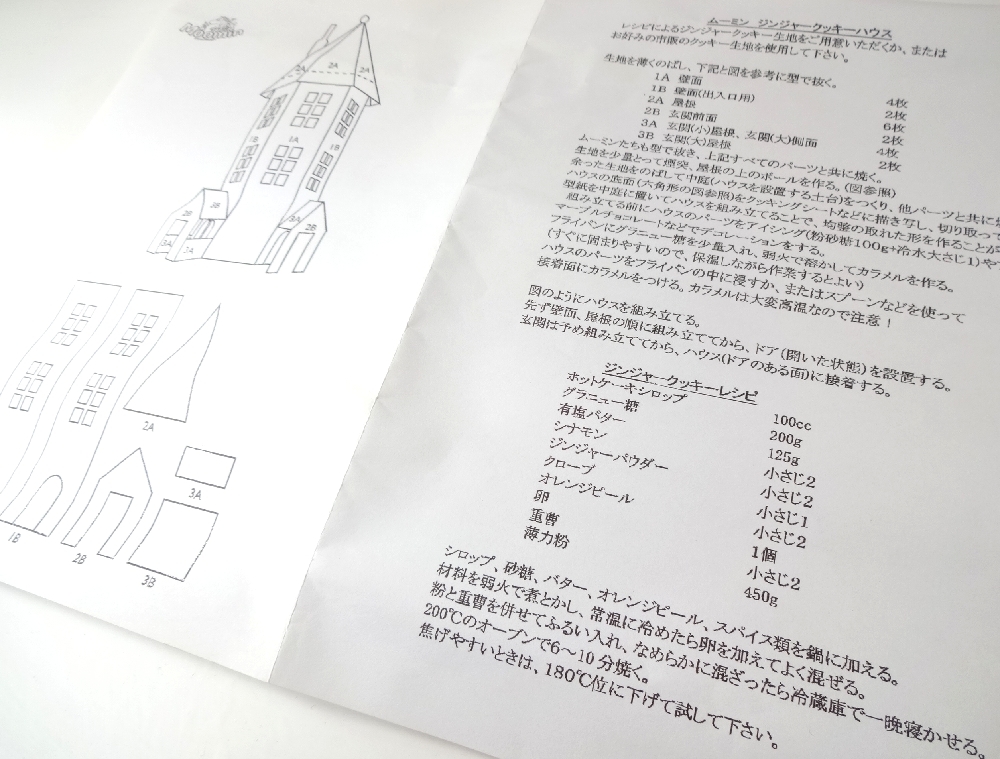 Moomin
2A
2A
2A
1B
1A
1B
3B
2B
3A
3A
3A
2B
2A
3A
1B
2B
3B
ムーミン ジンジャークッキーハウス
レシピによるジンジャークッキー生地をご用意いただくか、または
お好みの市販のクッキー生地を使用して下さい。
生地を薄くのばし、下記と図を参考に型で抜く。
1A 壁面 4枚
1B 壁面(出入口用) 2枚
2A 屋根 6枚
2B 玄関前面 2枚
3A 玄関(小)屋根、玄関(大)側面 4枚
3B 玄関(大)屋根 2枚
ムーミンたちも型で抜き、上記すべてのパーツと共に焼く。
生地を少量とって煙突、屋根の上のボールを作る。(図参照)
余った生地をのばして中庭(ハウスを設置する土台)をつくり、他パーツと共に
ハウスの底面(六角形の図参照)をクッキングシートなどに描き写し、切り取って
型紙を中庭に置いてハウスを組み立てることで、均整の取れた形を作ることが
組み立てる前にハウスのパーツをアイシング(粉砂糖100g+冷水大さじ1)や
マーブルチョコレートなどでデコレーションをする。
フライパンにグラニュー糖を少量入れ、弱火で溶かしてカラメルを作る。
(すぐに固まりやすいので、保温しながら作業するとよい)
ハウスのパーツをフライパンの中に浸すか、またはスプーンなどを使って
接着面にカラメルをつける。カラメルは大変高温なので注意!
図のようにハウスを組み立てる。
先ず壁面、屋根の順に組み立ててから、ドア(開いた状態)を設置する。
玄関は予め組み立ててから、ハウス(ドアのある面)に接着する。
ジンジャークッキーレシピ
ホットケーキシロップ 100cc
グラニュー糖 200g
有塩バター 125g
シナモン 小さじ2
ジンジャーパウダー 小さじ2
クローブ 小さじ1
オレンジピール 小さじ2
卵 1個
重曹 小さじ2
薄力粉 450g
シロップ、砂糖、バター、オレンジピール、スパイス類を鍋に加える。
材料を弱火で煮とかし、常温に冷めたら卵を加えてよく混ぜる。
粉と重曹を併せてふるい入れ、なめらかに混ざったら冷蔵庫で一晩寝かせる。
200℃のオーブンで6〜10分焼く。
焦げやすいときは、180℃位に下げて試して下さい。